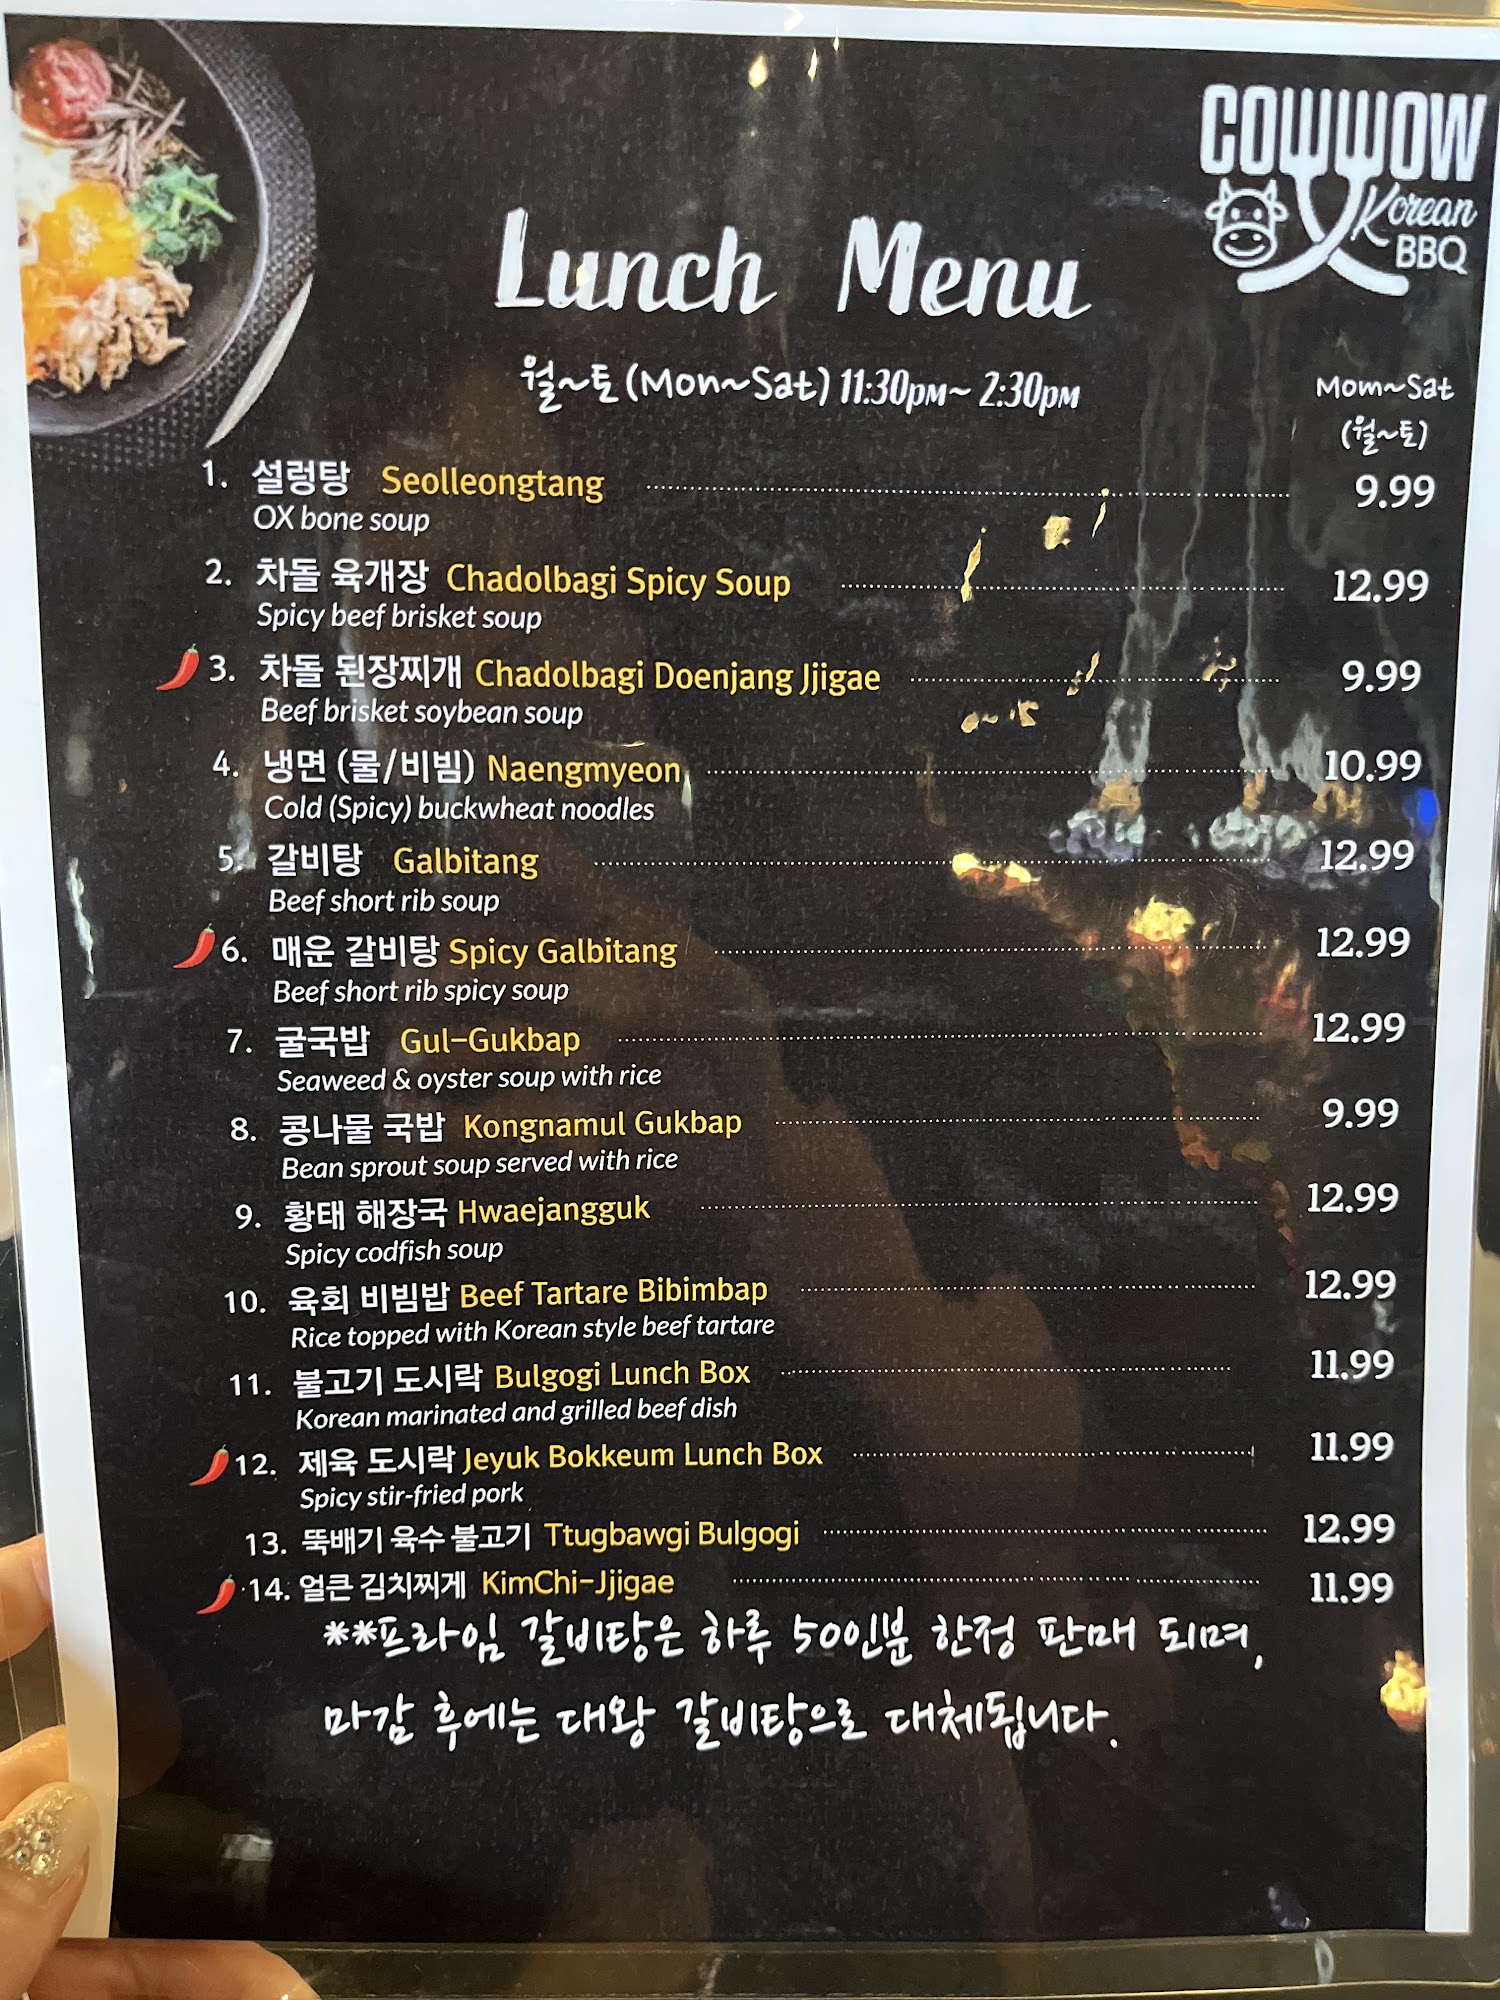 COWWOW
Korean
BBQ
Lunch Menu
월~토 (Mon~Sat) 11:30PM~ 2:30PM
Mom~Sat
(월~토)
1. 설렁탕 Seolleongtang 9.99
OX bone soup
2. 차돌 육개장 Chadolbagi Spicy Soup 12.99
Spicy beef brisket soup
3. 차돌 된장찌개 Chadolbagi Doenjang Jjigae 9.99
Beef brisket soybean soup
4. 냉면 (물/비빔) Naengmyeon 10.99
Cold (Spicy) buckwheat noodles
5. 갈비탕 Galbitang 12.99
Beef short rib soup
6. 매운 갈비탕 Spicy Galbitang 12.99
Beef short rib spicy soup
7. 굴국밥 Gul-Gukbap 12.99
Seaweed & oyster soup with rice
8. 콩나물 국밥 Kongnamul Gukbap 9.99
Bean sprout soup served with rice
9. 황태 해장국 Hwaejangguk 12.99
Spicy codfish soup
10. 육회 비빔밥 Beef Tartare Bibimbap 12.99
Rice topped with Korean style beef tartare
11. 불고기 도시락 Bulgogi Lunch Box 11.99
Korean marinated and grilled beef dish
12. 제육 도시락 Jeyuk Bokkeum Lunch Box 11.99
Spicy stir-fried pork
13. 뚝배기 육수 불고기 Ttugbawgi Bulgogi 12.99
14. 얼큰 김치찌게 KimChi-Jjigae 11.99
**프라임 갈비탕은 하루 50인분 한정 판매 되며,
마감 후에는 대왕 갈비탕으로 대체됩니다.